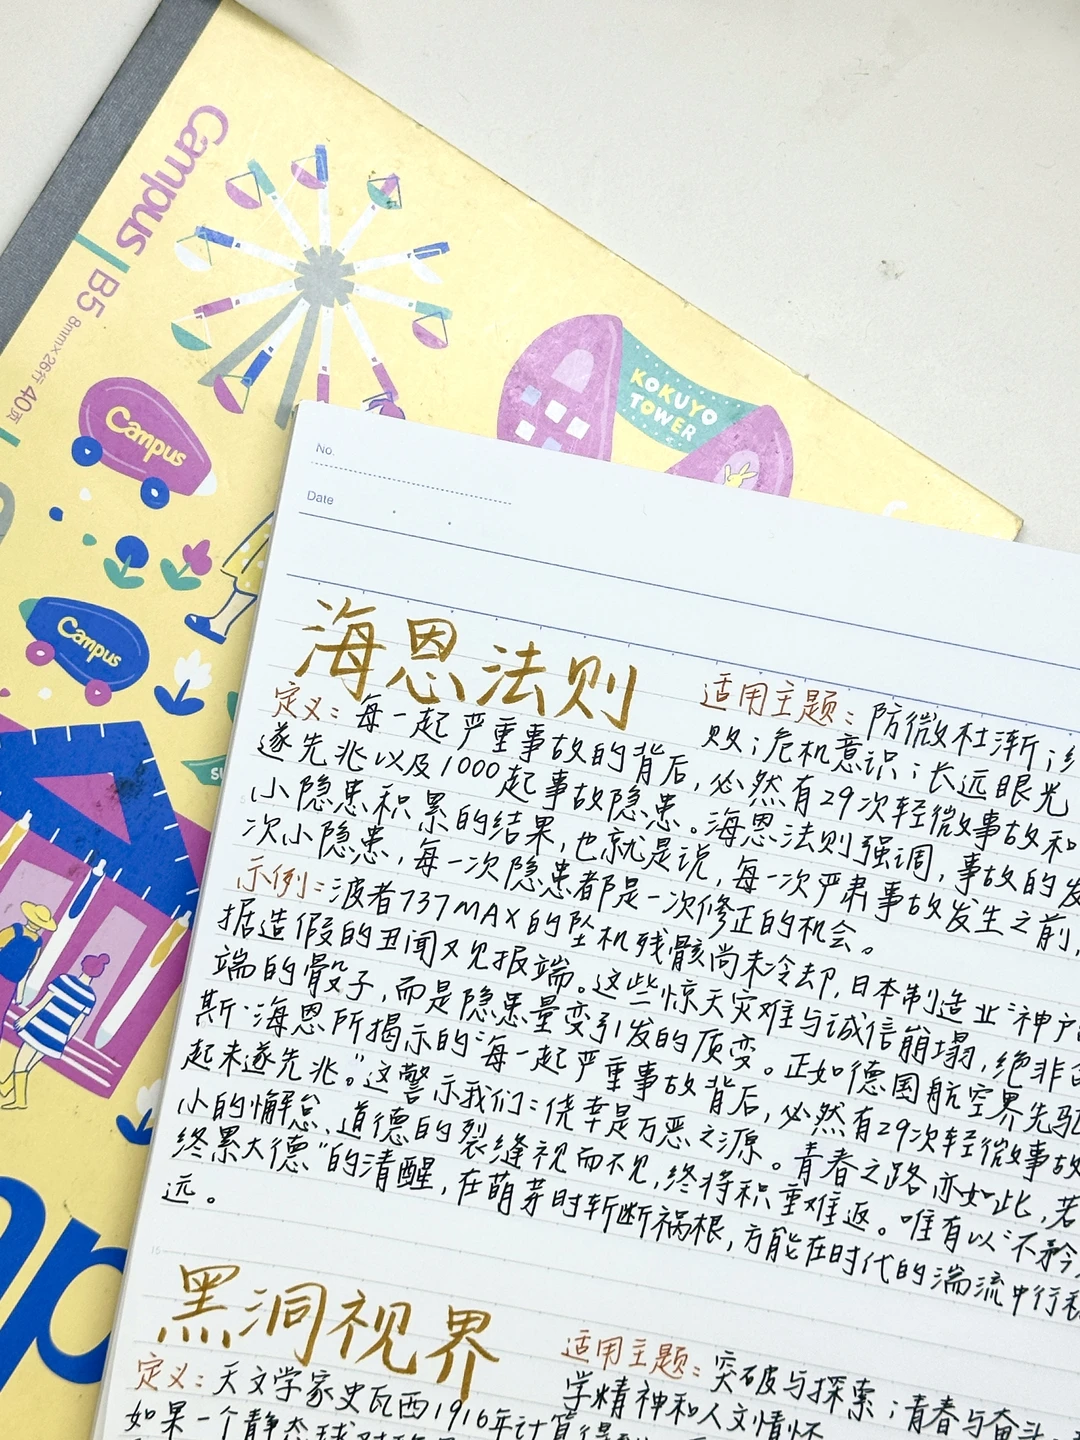 Campus
B5
8mm×26行 40页
Campus
KOKUYO
TOWER
Campus
No.
Date
海恩法则
适用主题：防微杜渐；
败；危机意识；长远眼光
定义：每一起严重事故的背后，必然有29次轻微事故和
遂先兆以及1000起事故隐患。海恩法则强调，事故的发
小隐患积累的结果，也就是说，每一次严肃事故发生之前，
次小隐患，每一次隐患都是一次修正的机会。
示例：波者737MAX的坠机残骸尚未冷却，日本制造业“神户
据造假的丑闻又见报端。这些惊天灾难与诚信崩塌，绝非
端的骰子，而是隐患量变引发的质变。正如德国航空界先驱
斯·海恩所揭示的“每一起严重事故背后，必然有29次轻微事故
起未遂先兆。”这警示我们：侥幸是万恶之源。青春之路亦如此，若
小的懈怠、道德的裂缝视而不见，终将积重难返。唯有以“不矜
终累大德“的清醒，在萌芽时斩断祸根，方能在时代的湍流中行稳
远。
15
黑洞视界
适用主题：突破与探索；青春与奋斗
学精神和人文情怀
定义：天文学家史瓦西1916年计算得
如果一个静态球对称